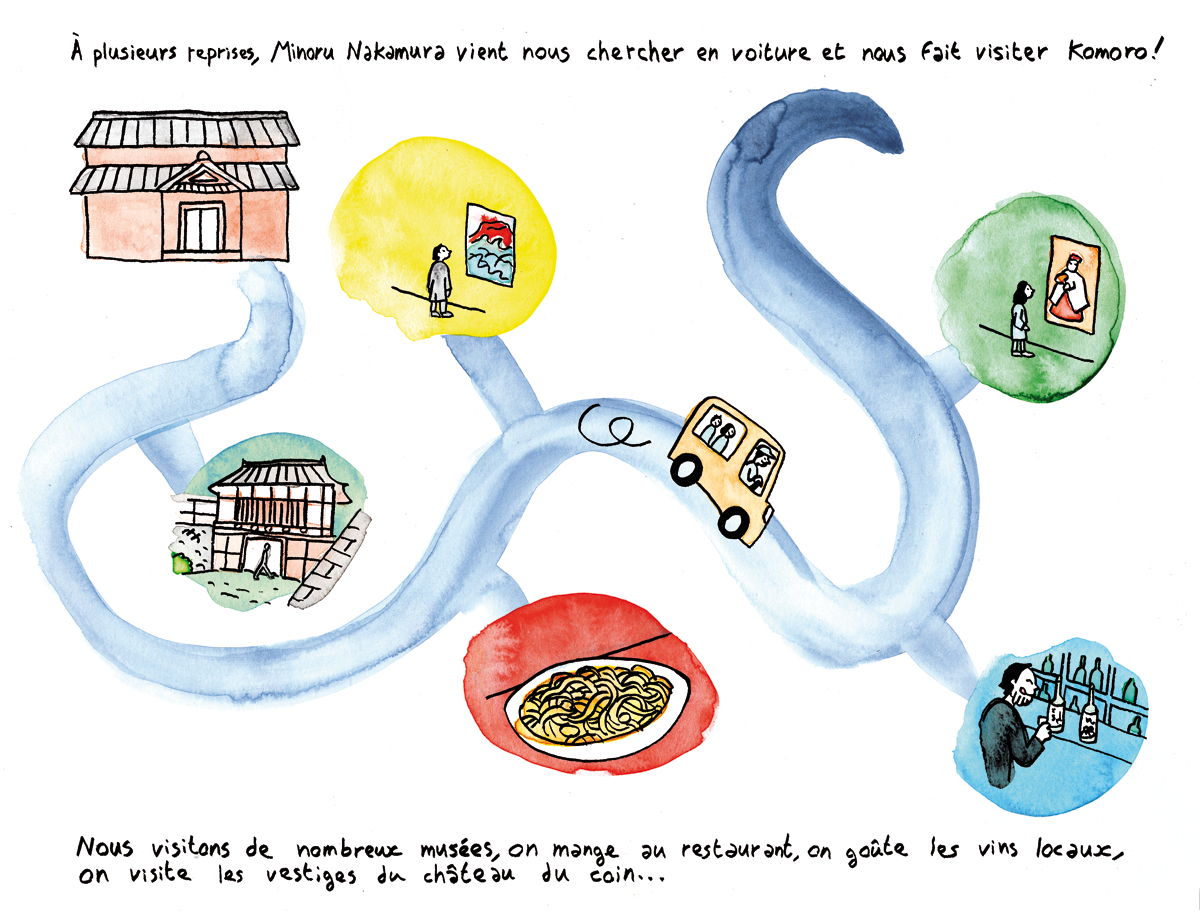 À plusieurs reprises, Minoru Nakamura vient nous chercher en voiture et nous fait visiter Komoro!
Nous visitons de nombreux musées, on mange au restaurant, on goûte les vins locaux,
on visite les vestiges du château du coin...